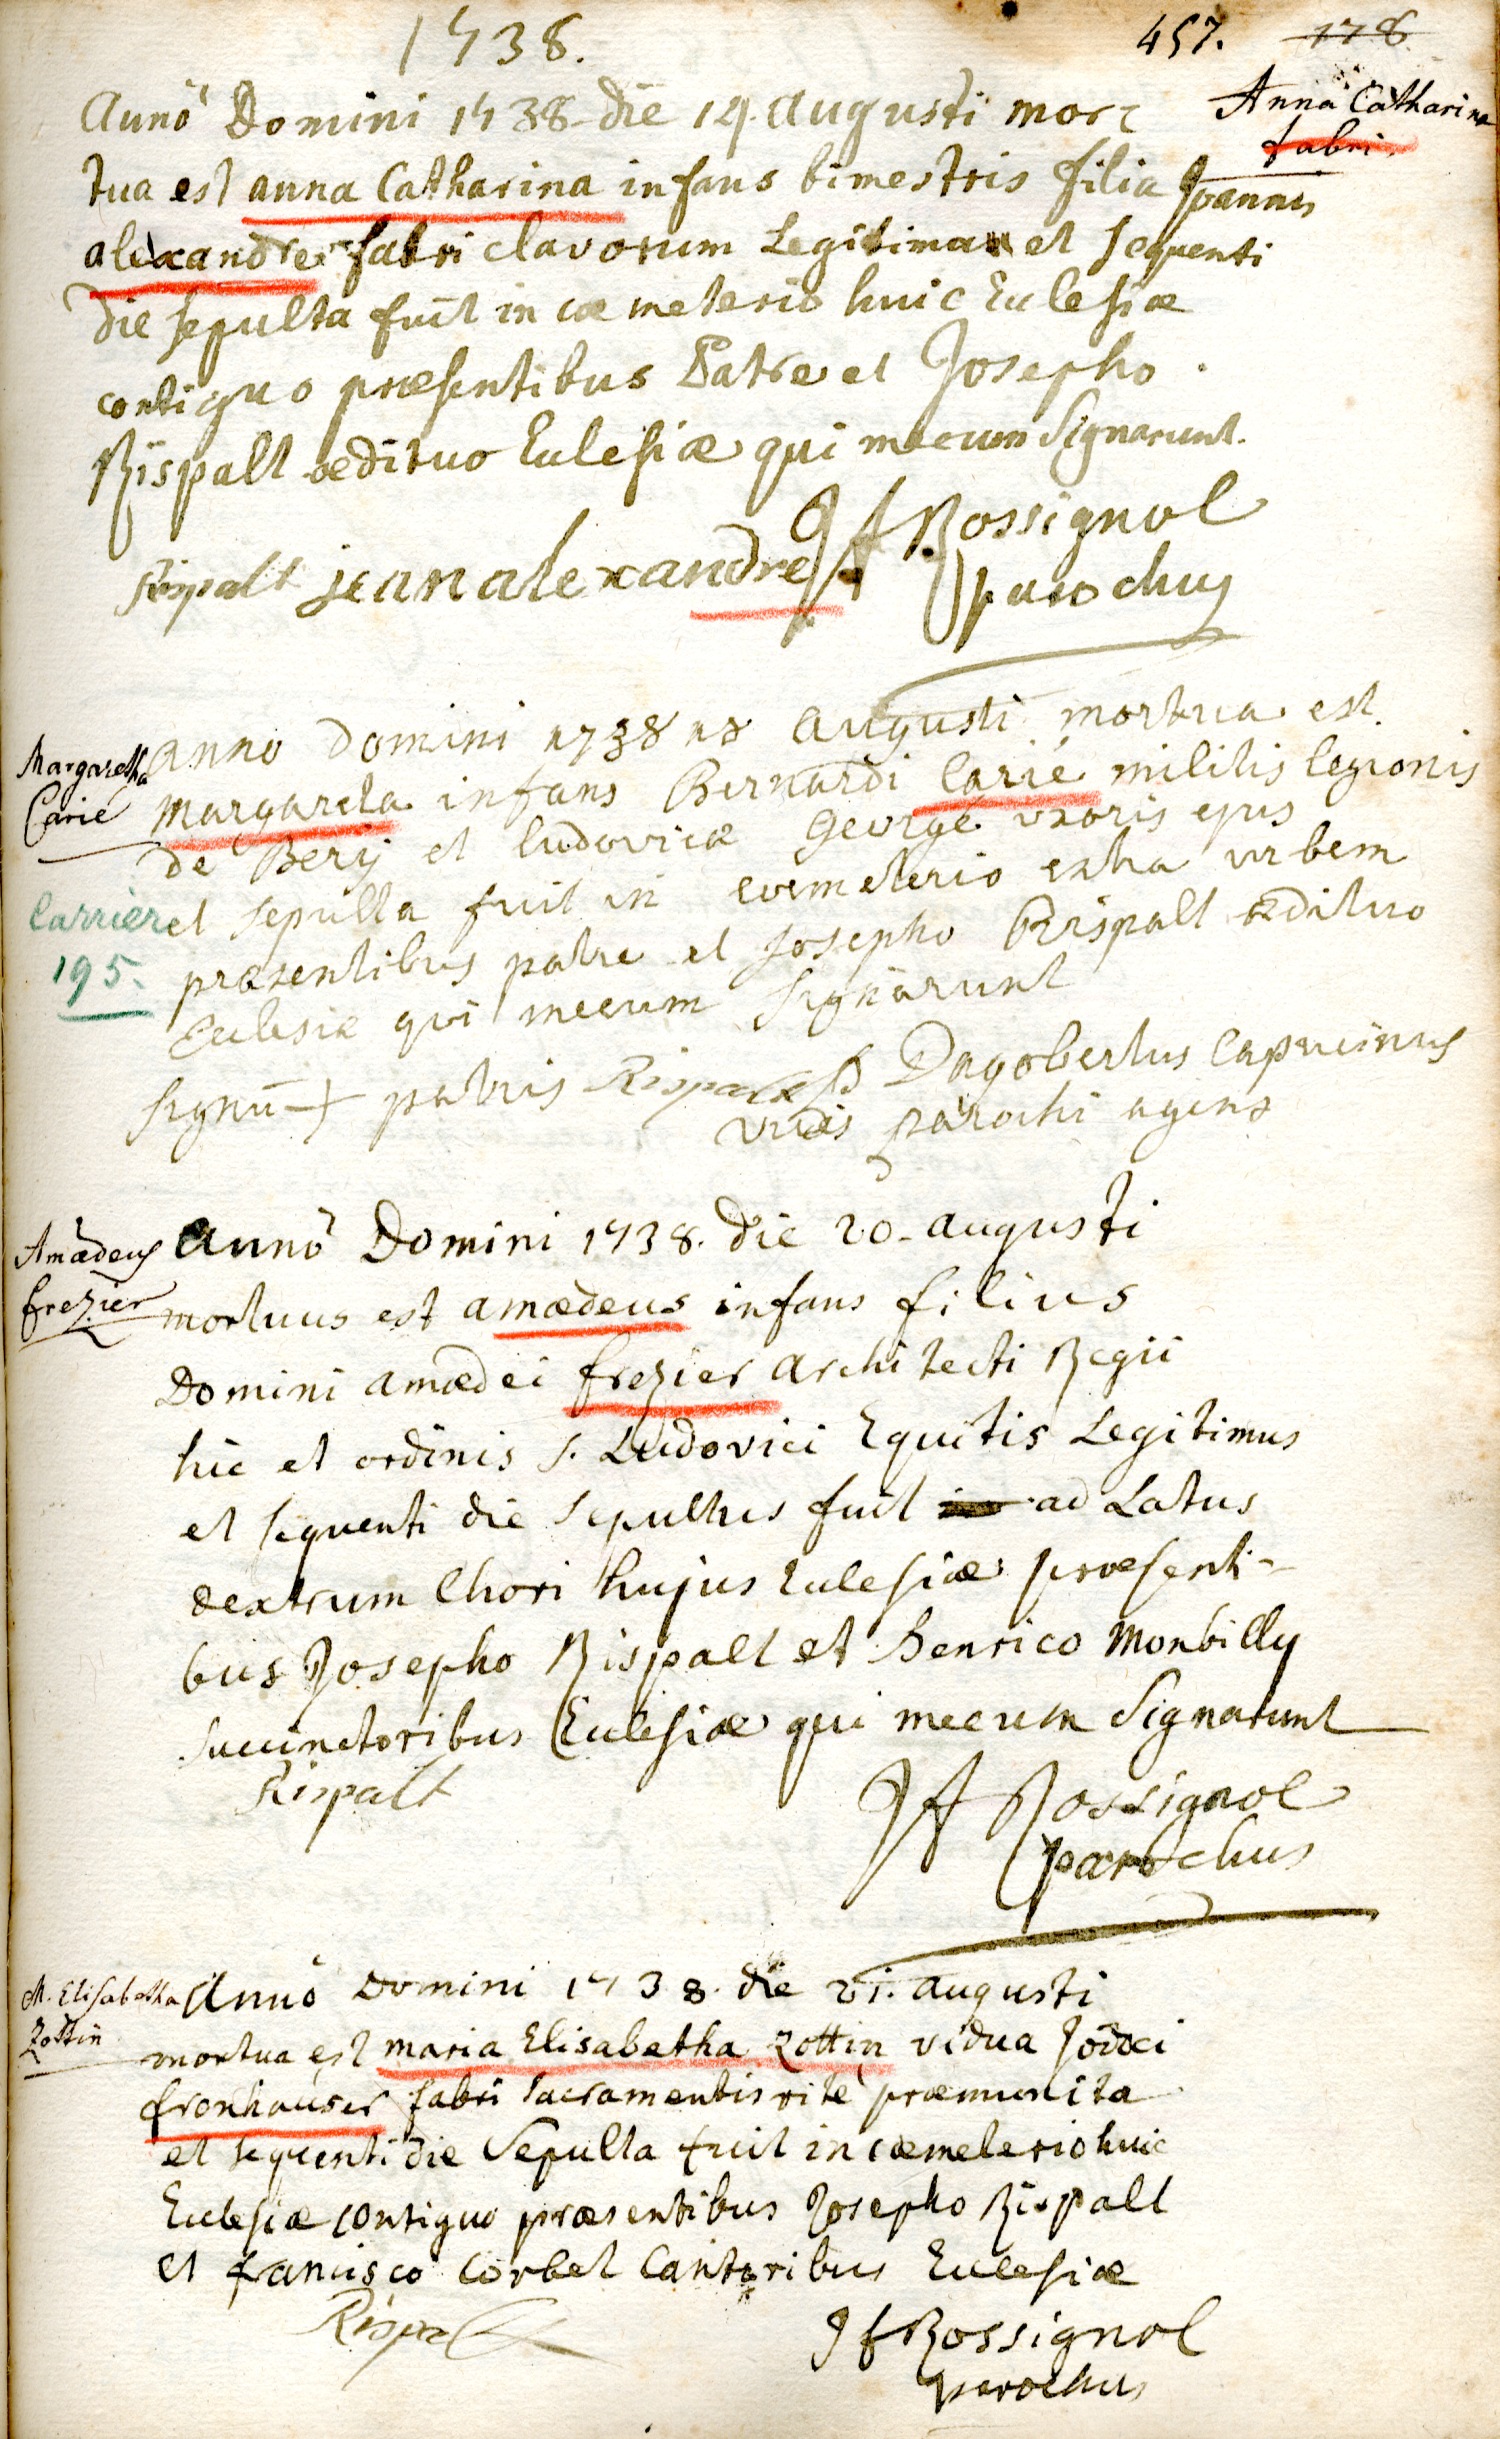 1738.
457. 178
Anna Catharina
fabri.
Anno Domini 1738 die 14. augusti mor=
tua est anna Catharina infans bimestris filia Joannis
alexandre fabri clavorum Legitima et sequenti
die sepulta fuit in cœmeterio huic Ecclesiæ
contiguo præsentibus Patre et Josepho
Rispalt ædituo Ecclesiæ qui mecum Signarunt.
Rispalt jean alexandre JF Rossignol
parochus
Margaretha
Carié
anno domini 1738 18 augusti mortua est
Margareta infans Bernardi Carié militis legionis
de Bery et ludovicæ George uxoris ejus
et sepulta fuit in coemeterio extra urbem
præsentibus patre et Josepho Rispalt ædituo
Ecclesiæ qui mecum signarunt
Carrier
195.
signū + patris Rispalt P Dagobertus Capucinus
vices parochi agens
Amædeus
frezier
Anno Domini 1738. die 20. augusti
mortuus est amædeus infans filius
Domini amædei frezier architecti Regii
hic et ordinis S. Ludovici Equitis Legitimus
et sequenti die sepultus fuit ad Latus
dextrum Chori hujus Ecclesiæ præsenti-
bus Josepho Rispalt et henrico Monbilly
succinctoribus Ecclesiæ qui mecum Signarunt
Rispalt
JF Rossignol
parochus
M. Elisabetha
Zottin
Anno Domini 1738. die 21. augusti
mortua est maria Elisabetha Zottin vidua Jodoci
fronhauser fabri sacramentis rite præmunita
et sequenti die Sepulta fuit in cæmeterio huic
Ecclesiæ contiguo præsentibus Josepho Rispalt
et francisco Corbet Cantoribus Ecclesiæ
Rispalt
JF Rossignol
parochus